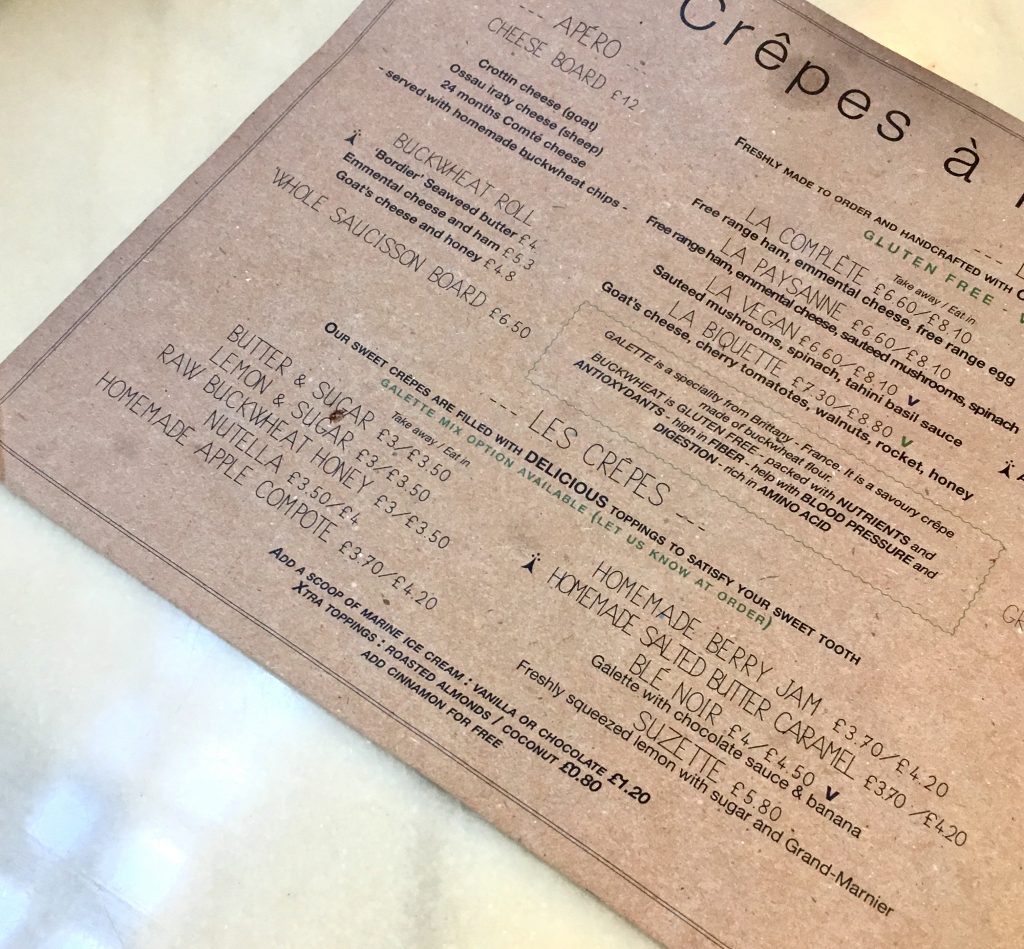 Crêpes à
--- APÉRO ---
CHEESE BOARD £12
Crottin cheese (goat)
Ossau iraty cheese (sheep)
24 months Comté cheese
- served with homemade buckwheat chips -
BUCKWHEAT ROLL
'Bordier' Seaweed butter £4
Emmental cheese and ham £5.3
Goat's cheese and honey £4.8
WHOLE SAUCISSON BOARD £6.50
FRESHLY MADE TO ORDER AND HANDCRAFTED WITH
GLUTEN FREE -
Take away / Eat in
LA COMPLÈTE £6.60/£8.10
Free range ham, emmental cheese, free range egg
LA PAYSANNE £6.60/£8.10
Free range ham, emmental cheese, sauteed mushrooms, spinach
LA VEGAN £6.60/£8.10 V
Sauteed mushrooms, spinach, tahini basil sauce
LA BIQUETTE £7.30/£8.80 V
Goat's cheese, cherry tomatotes, walnuts, rocket, honey
GALETTE is a speciality from Brittany - France. It is a savoury crêpe
made of buckwheat flour.
BUCKWHEAT is GLUTEN FREE - packed with NUTRIENTS and
ANTIOXYDANTS - high in FIBER - help with BLOOD PRESSURE and
DIGESTION - rich in AMINO ACID
--- LES CRÊPES ---
OUR SWEET CRÊPES ARE FILLED WITH DELICIOUS TOPPINGS TO SATISFY YOUR SWEET TOOTH
GALETTE MIX OPTION AVAILABLE (LET US KNOW AT ORDER)
Take away / Eat in
BUTTER & SUGAR £3/£3.50
LEMON & SUGAR £3/£3.50
RAW BUCKWHEAT HONEY £3/£3.50
NUTELLA £3.50/£4
HOMEMADE APPLE COMPOTE £3.70/£4.20
HOMEMADE BERRY JAM £3.70/£4.20
HOMEMADE SALTED BUTTER CARAMEL £3.70/£4.20
BLÉ NOIR £4/£4.50 V
Galette with chocolate sauce & banana
SUZETTE £5.80
Freshly squeezed lemon with sugar and Grand-Marnier
ADD A SCOOP OF MARINE ICE CREAM : VANILLA OR CHOCOLATE £1.20
XTRA TOPPINGS : ROASTED ALMONDS / COCONUT £0.80
ADD CINNAMON FOR FREE